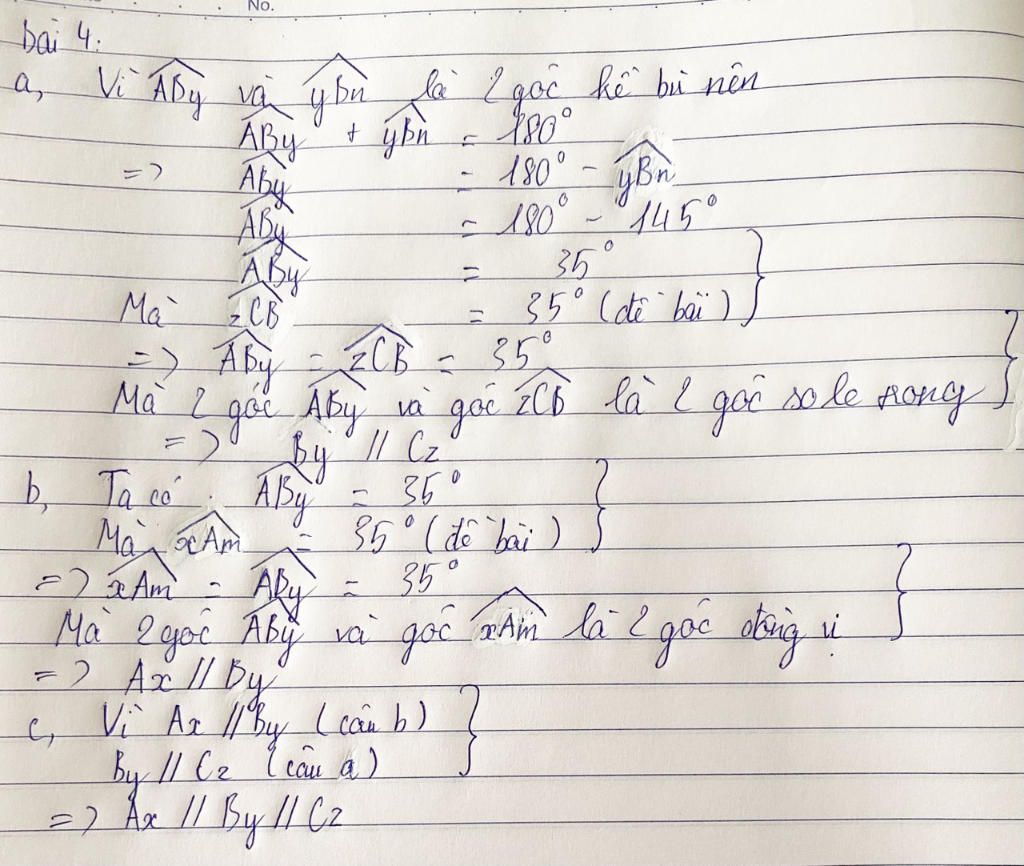 No.
bài 4:
a, Vì ABy và yBn là 2 góc kề bù nên
ABy + yBn = 180°
=> ABy = 180° - yBn
ABy = 180° - 145°
ABy = 35°
Mà zCB = 35° (đề bài)
=> ABy = zCB = 35°
Mà 2 góc ABy và góc zCB là 2 góc so le trong
=> By // Cz
b, Ta có ABy = 35°
Mà xAm = 35° (đề bài)
=> xAm = ABy = 35°
Mà 2 góc ABy và góc xAm là 2 góc đồng vị
=> Ax // By
c, Vì Ax // By (câu b)
By // Cz (câu a)
=> Ax // By // Cz